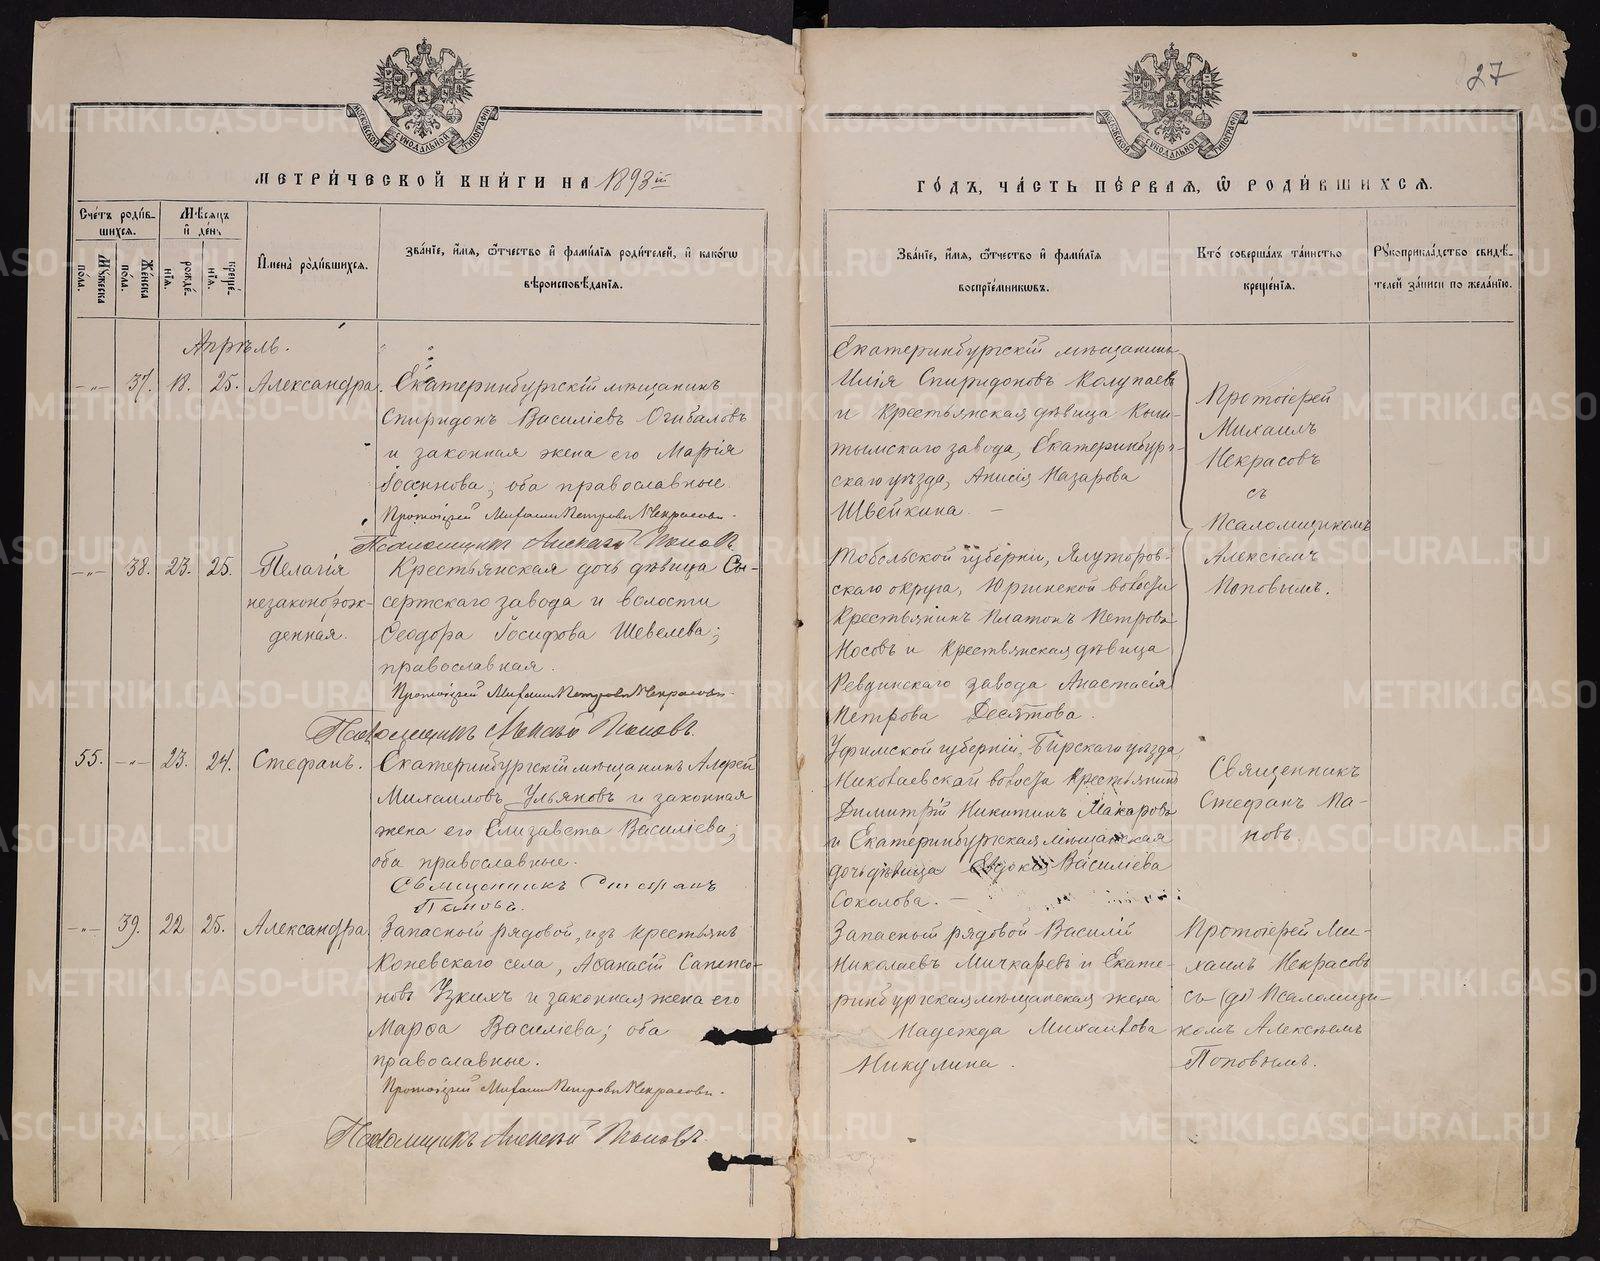 27
МОСКОВСКОЙ СѴНОДАЛЬНОЙ ТИПОГРАФІИ
МОСКОВСКОЙ СѴНОДАЛЬНОЙ ТИПОГРАФІИ
МЕТРИ́ЧЕСКОЙ КНИ́ГИ НА 1893 й
ГО́ДЪ, ЧА́СТЬ ПЕ́РВАЯ, Ѡ РОДИ́ВШИХСЯ.
Сче́тъ роди́в-
шихся.
Му́жеска по́ла.
Же́нска по́ла.
Мѣ́сяцъ и҆ де́нь
рожде́-
нія.
креще́-
нія.
И҆мена̀ роди́вшихся.
Зва́нїе, и҆́мя, ѻ҆́тчество и҆ фами́лїя роди́телей, и҆ како́гѡ
вѣроисповѣ́данїя.
Зва́нїе, и҆́мя, ѻ҆́тчество и҆ фами́лїя
воспрїе́мникѡвъ.
Кто̀ соверша́лъ та́инство
креще́нїя.
Рꙋкоприкла́дство свидѣ́-
телей за́писи по жела́нїю.
Апрѣль.
-"- 37. 18. 25. Александра.
Екатеринбургскій мѣщанинъ
Спиридонъ Василіевъ Огибаловъ
и законная жена его Марія
Іоаннова; оба православные.
Протоіерей Михаилъ Петровъ Некрасовъ.
Псаломщикъ Алексѣй Поповъ.
Екатеринбургскій мѣщанинъ
Илія Спиридоновъ Колупаевъ
и крестьянская дѣвица Кыш-
тымскаго завода, Екатеринбург-
скаго уѣзда, Анисія Назарова
Швейкина. –
Протоіерей
Михаилъ
Некрасовъ
съ
Псаломщикомъ
Алексіемъ
Поповымъ.
-"- 38. 23. 25. Пелагія
незаконорож-
денная.
Крестьянская дочь дѣвица Сы-
сертскаго завода и волости
Ѳеодора Іосифова Шевелева;
православная.
Протоіерей Михаилъ Петровъ Некрасовъ.
Псаломщикъ Алексѣй Поповъ.
Тобольской губерніи, Ялуторов-
скаго округа, Юргинской волости
крестьянинъ Платонъ Петровъ
Носовъ и крестьянская дѣвица
Ревдинскаго завода Анастасія
Петрова Десятова.
55. -"- 23. 24. Стефанъ.
Екатеринбургскій мѣщанинъ
Михаиловъ Ульяновъ и законная
жена его Елизавета Василіева;
оба православные.
Священникъ Стефанъ
Пановъ.
Уфимской губерніи, Бирскаго уѣзда,
Николаевской волости крестьянинъ
Димитрій Никитинъ Макаровъ
и Екатеринбургская мѣщанская
дочь дѣвица Евдокія Василіева
Соколова. –
Священникъ
Стефанъ Па-
новъ.
-"- 39. 22 25. Александра.
Запасный рядовой, изъ крестьянъ
Коневскаго села, Аѳанасій
Узкихъ и законная жена его
Марѳа Василіева; оба
православные.
Протоіерей Михаилъ Петровъ Некрасовъ.
Псаломщикъ Алексѣй Поповъ.
Запасный рядовой Василій
Николаевъ Мичкаревъ и Екате-
ринбургская мѣщанская жена
Надежда Михайлова
Никулина.
Протоіерей Ми-
хаилъ Некрасовъ
съ Псаломщи-
комъ Алексѣемъ
Поповымъ.
METRIKI.GASO-URAL.RU